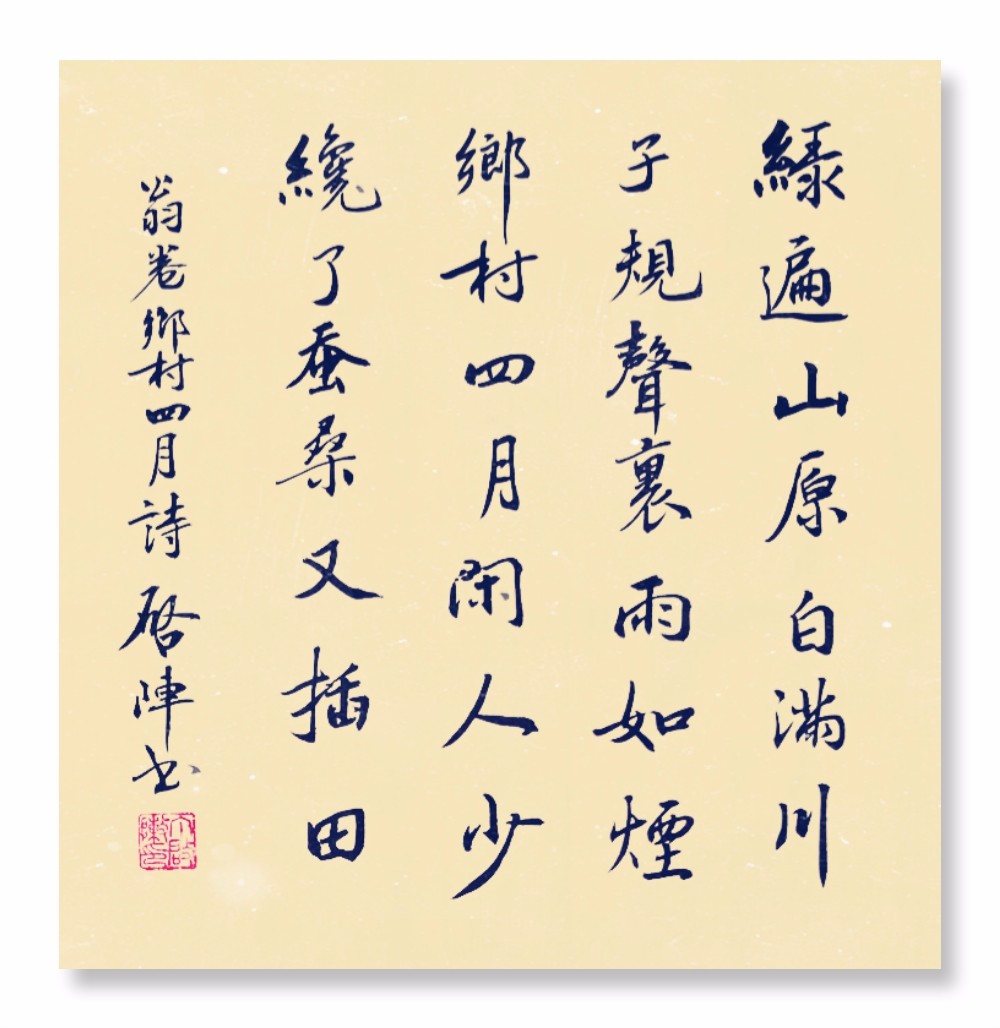 綠遍山原白滿川
子規聲裏雨如煙
鄉村四月閑人少
纔了蚕桑又插田
翁卷鄉村四月詩 啓陣书